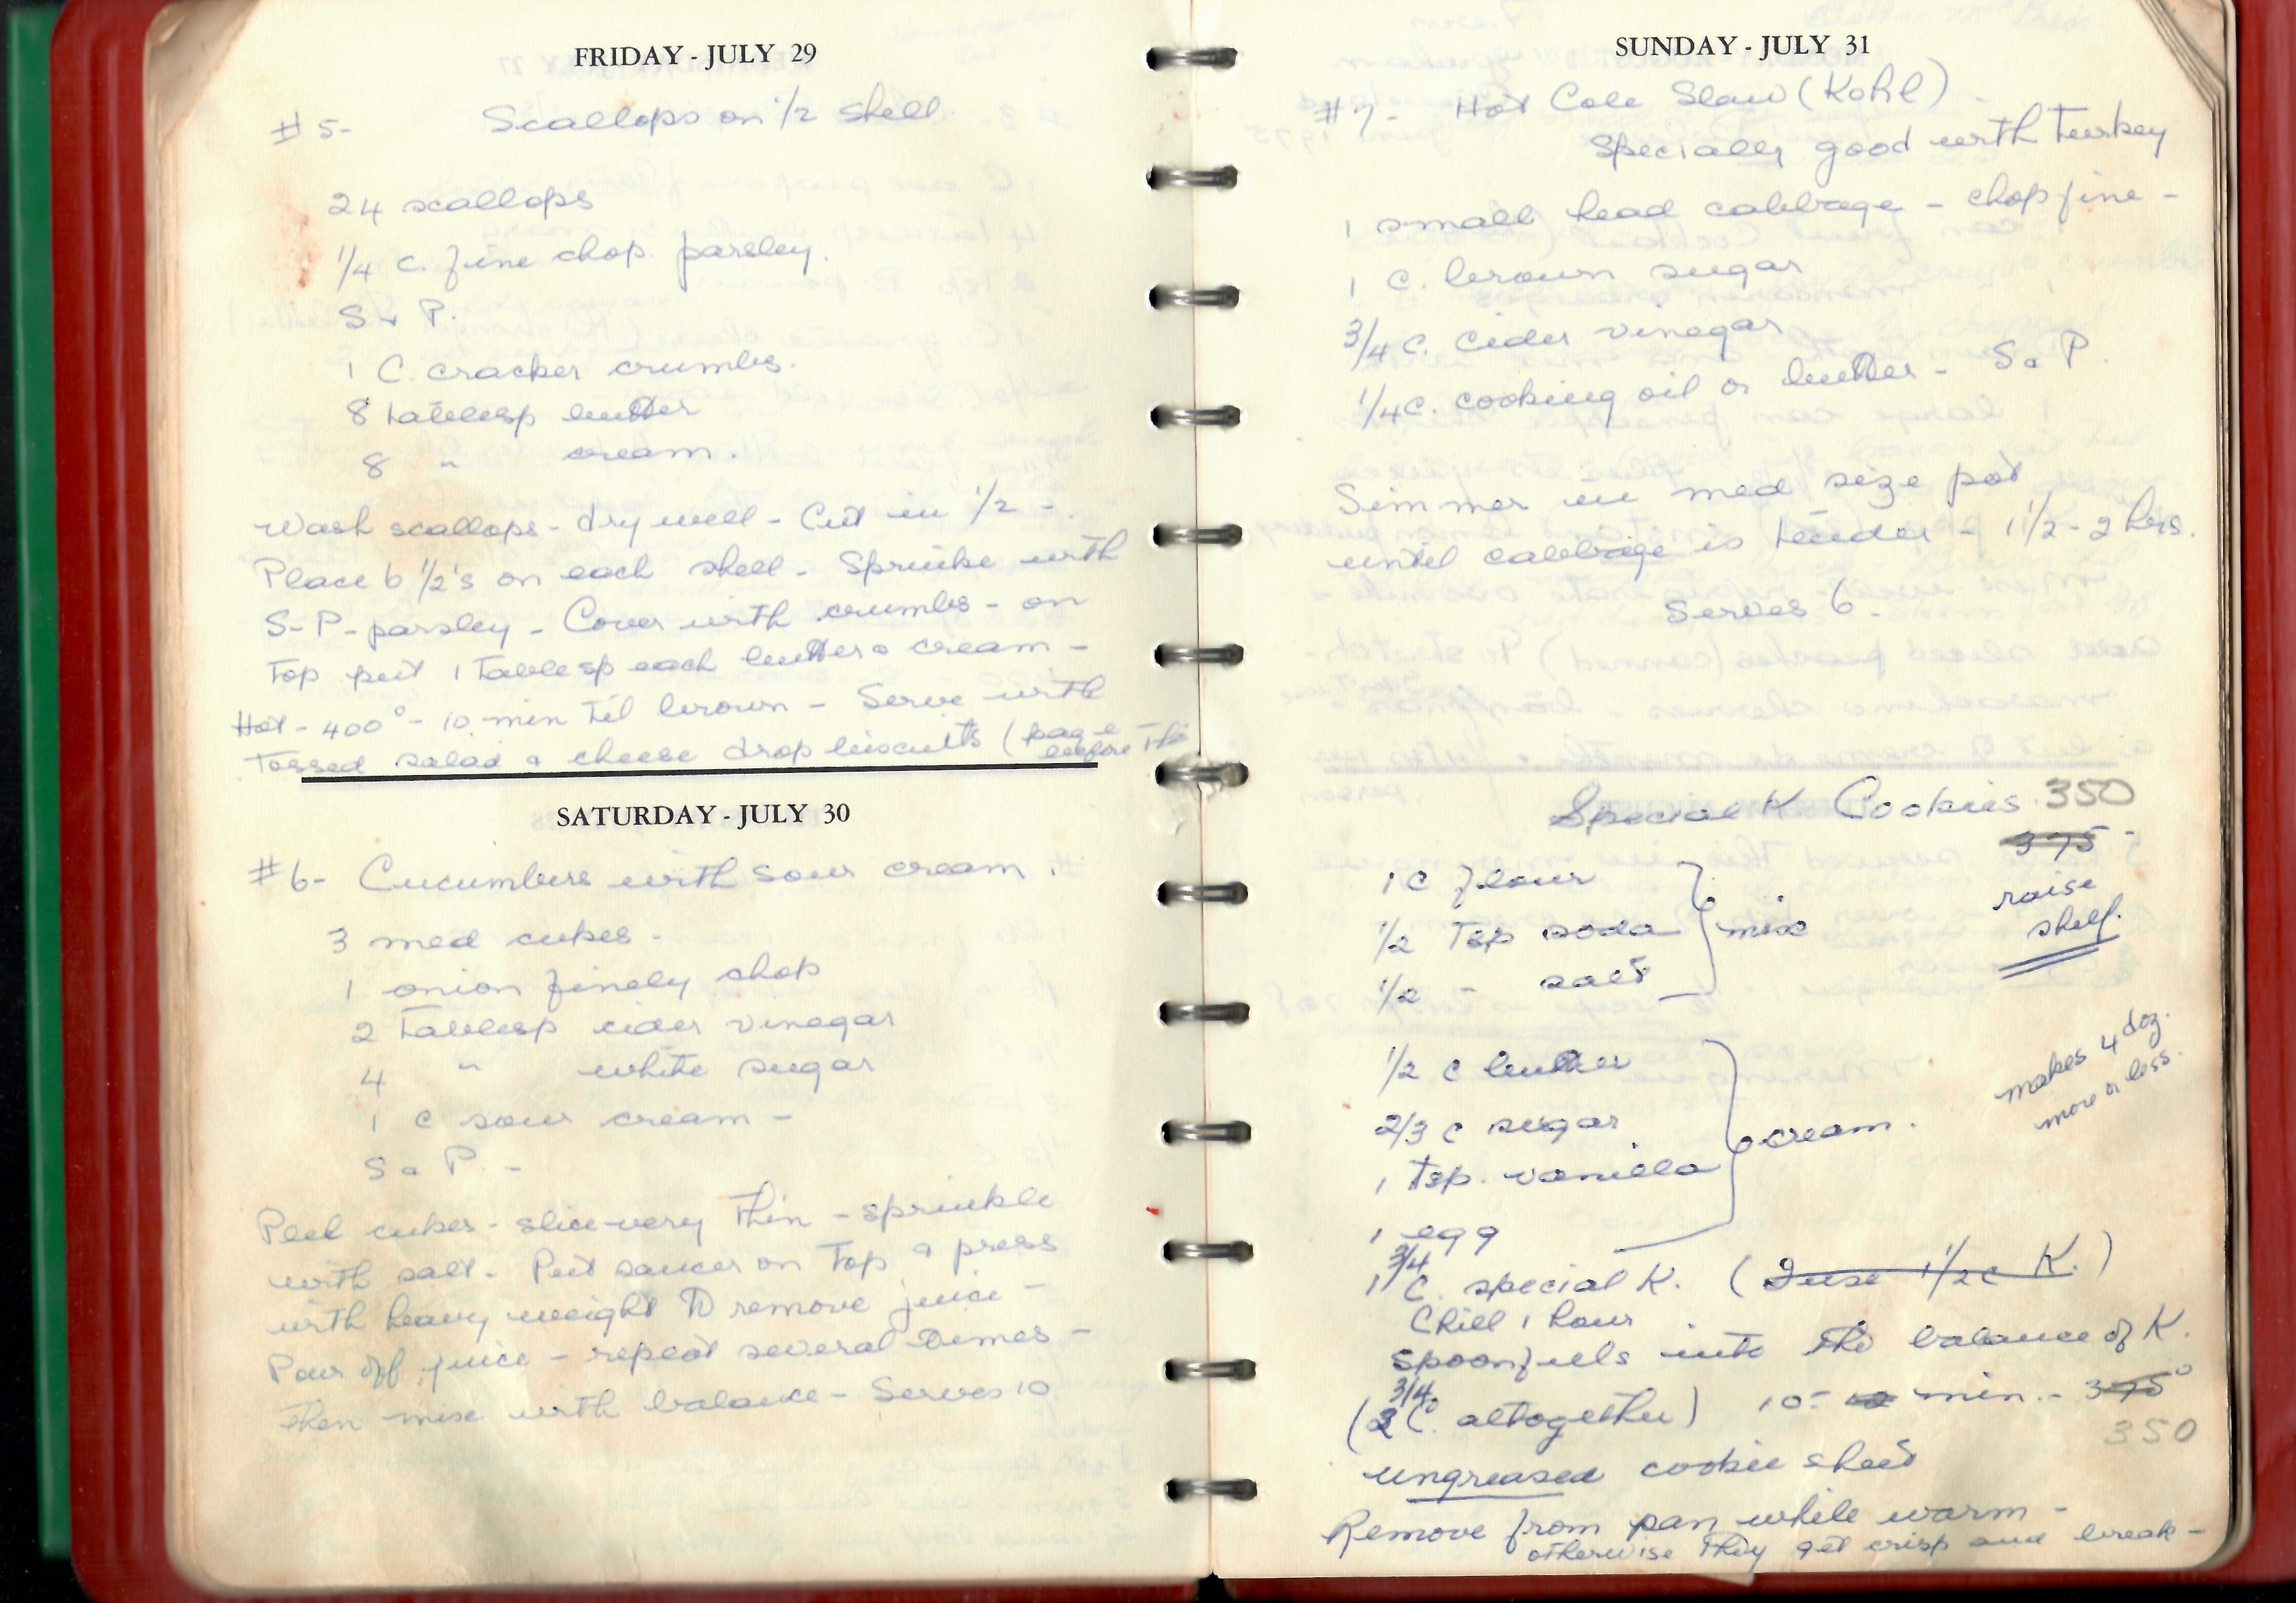 FRIDAY - JULY 29
#5- Scallops on 1/2 shell.
24 scallops
1/4 C. fine chop. parsley.
S & P.
1 C. cracker crumbs.
8 tablesp butter
8 " cream.
Wash scallops - dry well - Cut in 1/2 -
Place 6 1/2's on each shell - Sprinke with
S-P-parsley - Cover with crumbs - on
top put 1 tablesp each butter & cream -
Hot - 400° - 10 min til brown - Serve with
tossed salad & cheese drop biscuits (page
before this
SATURDAY - JULY 30
#6- Cucumbers with sour cream.
3 med cukes -
1 onion finely chop
2 tablesp cider vinegar
4 " white sugar
1 C sour cream -
S & P. -
Peel cukes - slice very thin - sprinkle
with salt - Put saucer on top & press
with heavy weight to remove juice -
Pour off juice - repeat several times -
then mix with balance - Serves 10
SUNDAY - JULY 31
#7- Hot Cole Slaw (Kohl)
Specially good with turkey
1 small head cabbage - chop fine -
1 C. brown sugar
3/4 C. cider vinegar
1/4 C. cooking oil or butter - S & P.
Simmer in med size pot
until cabbage is tender - 1 1/2 - 2 hrs.
Serves 6.
Special K Cookies 350
375 -
raise
shelf.
1 C flour
1/2 Tsp soda
1/2 " salt
mix
1/2 C butter
2/3 C sugar
1 Tsp. vanilla
1 egg
cream.
makes 4 doz.
more or less.
1 3/4 C. special K. (I use 1/2 C K.)
Chill 1 hour
spoonfuls into the balance of K.
(2 3/4 C. altogether) 10 - min. - 375°
350
ungreased cookie sheet
Remove from pan while warm -
otherwise they get crisp and break -